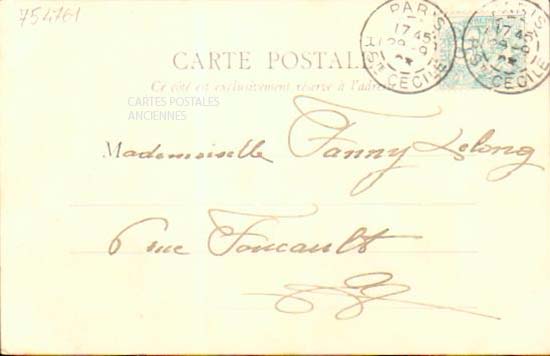 754761
PARIS
17 45
29 - 9
R. STE CECILE
PARIS
17 45
29 - 9
R. STE CECILE
CARTE POSTALE
Ce côté est exclusivement réservé à l'adresse
CARTES POSTALES
ANCIENNES
Mademoiselle Fanny Lelong
6 rue Foucault